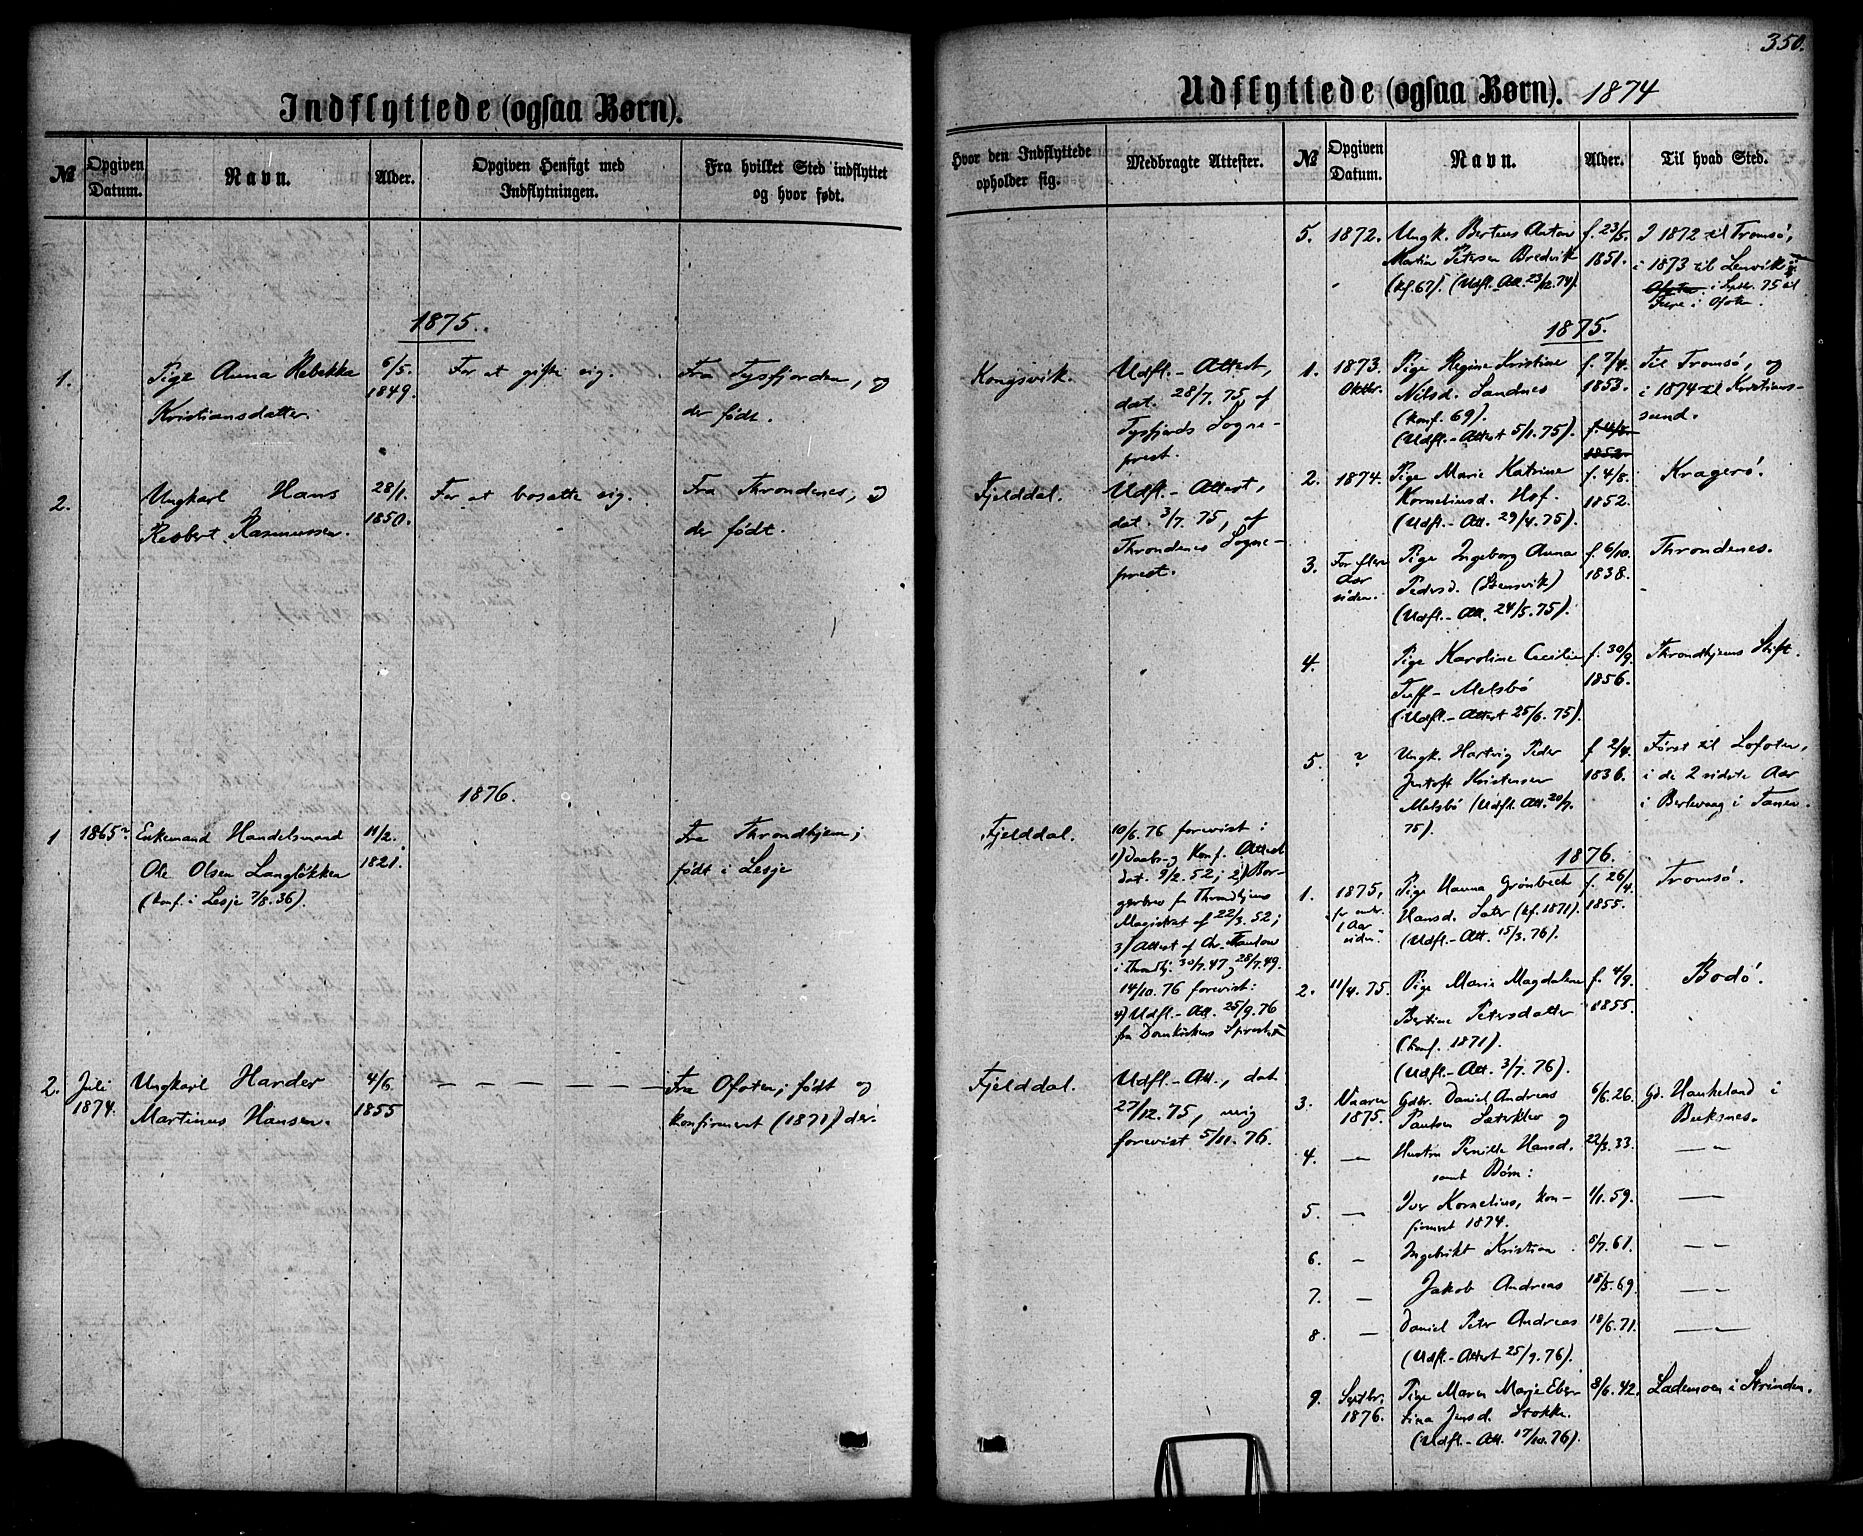 350.
Indflyttede (ogsaa Børn).
№
Opgiven Datum.
Navn.
Alder.
Opgiven Hensigt med Indflytningen.
Fra hvilket Sted indflyttet og hvor født.
1875.
1.
Pige Anna Rebekka
Kristiansdatter.
6/5.
1849.
For at gifte sig.
Fra Tysfjorden, og
der født.
2.
Ungkarl Hans
Robert Rasmussen.
28/1.
1850.
For at bosætte sig.
Fra Throndenes, og
der født.
1876.
1
1865
Enkemand Handelsmand
Ole Olsen Langløkken
(konf. i Lesje 7/8.36).
11/2.
1821.
Fra Throndhjem;
født i Lesje
2.
Juli
1874.
Ungkarl Harder
Martinus Hansen.
4/6.
1855
— — — — — —
Fra Ofoten; født og
konfirmeret (1871) der.
Udflyttede (ogsaa Børn). 1874
Hvor den Indflyttede opholder sig.
Medbragte Attester.
№
Opgiven Datum.
Navn.
Alder.
Til hvad Sted.
Kongsvik.
Udfl.-Attest,
dat. 28/7. 75, af
Tysfjords Sogne-
prest.
Fjelddal.
Udfl.-Attest,
dat. 3/7. 75, af
Throndenes Sogne-
prest.
Fjelddal.
10/6. 76 forevist:
1) Daabs- og Konf. Attest
dat. 9/2. 52; 2) Bor-
gerbrev fr Throndhjems
Magistrat af 22/3. 52;
3) Attest af Chr. Thaulow
i Throndhj. 30/7. 47 og 28/7. 49.
14/10. 76 forevist:
4) Udfl.-Att. 25/9. 76
fra Domkirkens
Fjelddal.
Udfl.-Att., dat.
27/12. 75, mig
forevist 5/11. 76.
5.
1872.
Ungk. Berteus Anton
Martin Petersen Bredvik
(kf. 67). (Udfl. Att. 23/12. 74).
f. 23/5.
1851.
I 1872 til Tromsø,
i 1873 til Lenvik,
i Septbr. 75 til
i Ofoten.
1875.
1.
1873.
Oktbr.
Pige Regine Kristine
Nilsd. Sandnes
(konf. 69).
(Udfl.-Attest 5/1. 75).
f. 7/4.
1853.
f. 4/8.
1852.
Til Tromsø, og
i 1874 til Kristians-
sund.
2.
1874.
Pige Marie Katrine
Korneliusd. Hof.
(Udfl.-Att. 29/4. 75).
f. 4/8.
1852.
Kragerø.
3.
For flere
Aar
siden.
Pige Ingeborg Anna
Pedersd. (Stensvik)
(Udfl.-Att. 24/5. 75).
f. 6/10.
1838.
Throndenes.
4.
Pige Karoline Cecilie
Tuff-Melsbø
(Udfl.-Attest 25/6. 75).
f. 30/9.
1856.
Throndhjems Stift.
5.
?
Ungk. Hartvig Peder
Justoft Kristensen
Melsbø (Udfl. Att. 20/7.
75).
f. 2/4.
1836.
Først til Lofoten,
i de 2 sidste Aar
i Berlevaag i Tanen.
1876.
1.
1875,
Aar
siden.
Pige Hanna Grønbech
Hansd. Sæter (kf. 1871).
(Udfl.-Att. 15/3. 76).
f. 26/4.
1855.
Tromsø.
2.
11/4. 75.
Pige Marie Magdalena
Bertine Petersdatter
(konf. 1871).
(Udfl.-Att. 3/7. 76).
f. 4/9.
1855.
Bodø.
3.
Vaaren
1875.
Gdbr. Daniel Andreas
Paulsen Sæterklev og
6/6. 26.
Gd. Haukeland i
Buksnes.
4.
—
Hustru Pernille Hansd.
samt Børn:
22/3. 33.
—„—
5.
—
Iver Kornelius, kon-
firmeret 1874.
1/1. 59.
—„—
6.
—
Ingebrikt Kristian
8/7. 61.
—„—
7.
—
Jakob Andreas
18/5. 69.
—„—
8.
—
Daniel Peter Andreas
(Udfl.-Attest 25/9. 76).
18/6. 71.
—„—
9.
Septbr.
1876.
Pige Maren Marje Eber-
tina Jensd. Stokke.
(Udfl.-Att. 17/10. 76).
8/6. 42.
Lademoen i Strinden.